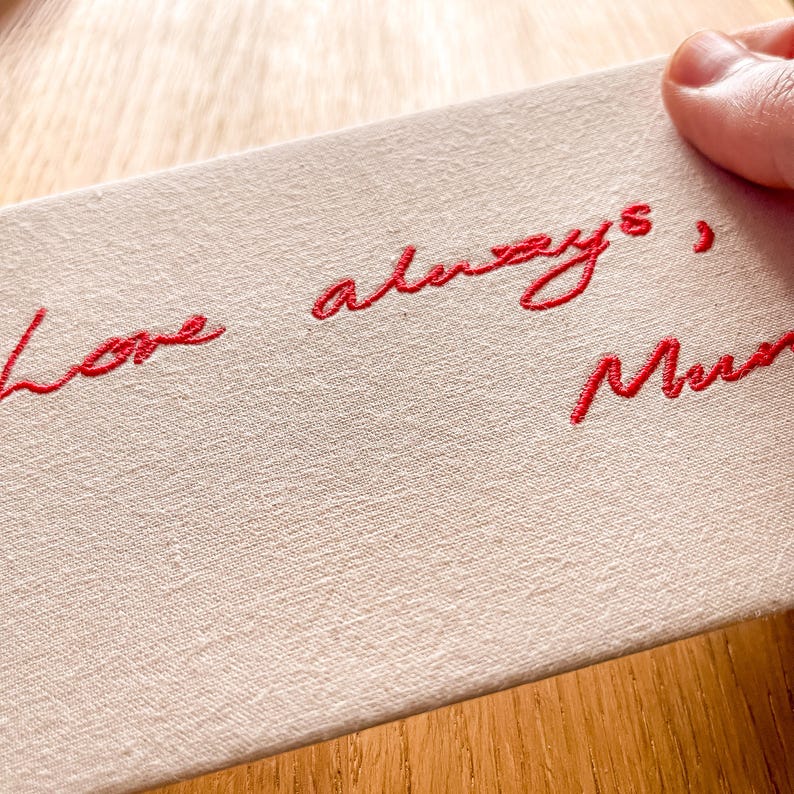 Love always,
Mum